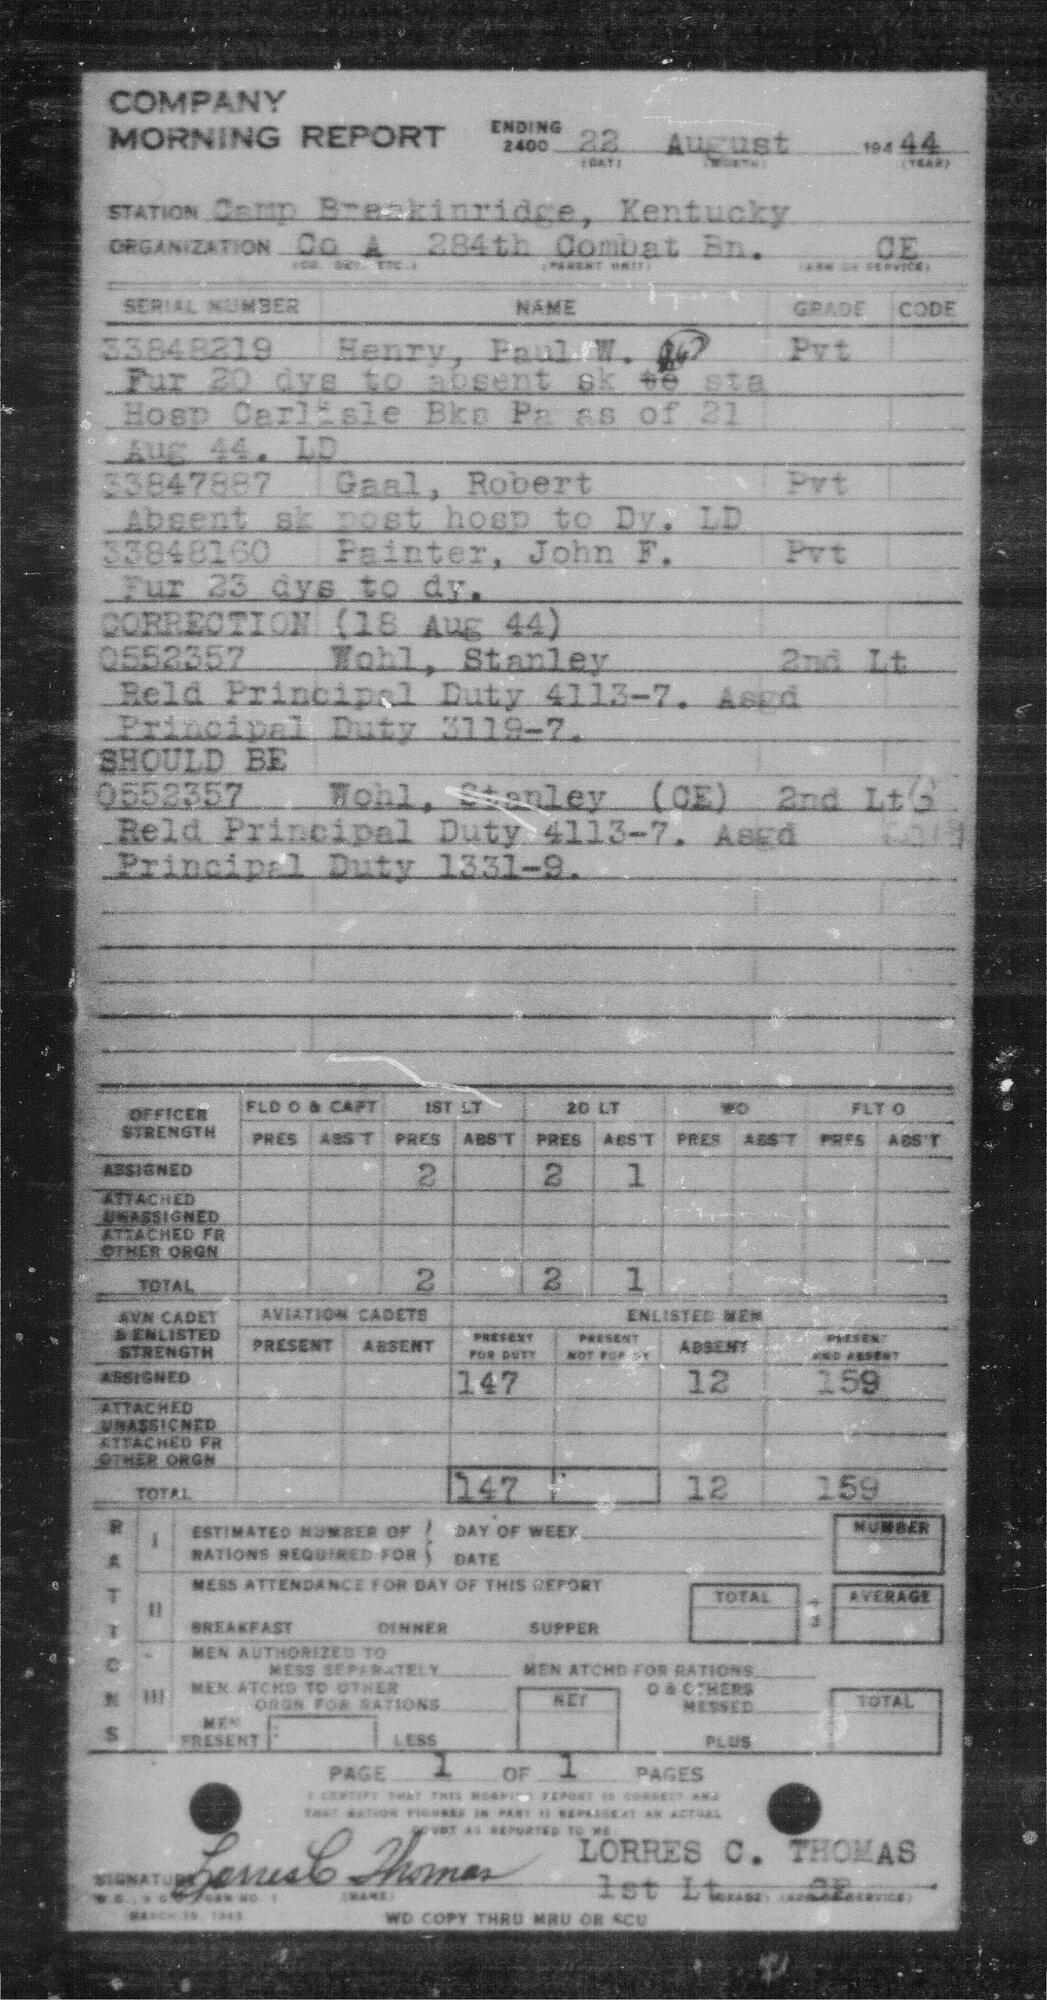 COMPANY
MORNING REPORT ENDING 2400 22 August 194 44
(DAY) (MONTH) (YEAR)
STATION Camp Breakinridge, Kentucky
ORGANIZATION Co A 284th Combat Bn. CE
(CO. DET. ETC.) (PARENT UNIT) (ARM OR SERVICE)
SERIAL NUMBER NAME GRADE CODE
33848219 Henry, Paul W. Pvt
Fur 20 dys to absent sk to sta
Hosp Carlisle Bks Pa as of 21
Aug 44. LD
33847887 Gaal, Robert Pvt
Absent sk post hosp to Dy. LD
33848160 Painter, John F. Pvt
Fur 23 dys to dy.
CORRECTION (18 Aug 44)
0552357 Wohl, Stanley 2nd Lt
Reld Principal Duty 4113-7. Asgd
Principal Duty 3119-7.
SHOULD BE
0552357 Wohl, Stanley (CE) 2nd Lt
Reld Principal Duty 4113-7. Asgd
Principal Duty 1331-9.
OFFICER STRENGTH FLD O & CAPT 1ST LT 2D LT WO FLT O
PRES ABS'T PRES ABS'T PRES ABS'T PRES ABS'T PRES ABS'T
ASSIGNED 2 2 1
ATTACHED UNASSIGNED
ATTACHED FR OTHER ORGN
TOTAL 2 2 1
AVN CADET & ENLISTED STRENGTH AVIATION CADETS ENLISTED MEN
PRESENT ABSENT PRESENT FOR DUTY PRESENT NOT FOR DY ABSENT PRESENT AND ABSENT
ASSIGNED 147 12 159
ATTACHED UNASSIGNED
ATTACHED FR OTHER ORGN
TOTAL 147 12 159
RATIONS
I ESTIMATED NUMBER OF RATIONS REQUIRED FOR DAY OF WEEK DATE NUMBER
II MESS ATTENDANCE FOR DAY OF THIS REPORT TOTAL ÷ 3 AVERAGE
BREAKFAST DINNER SUPPER
III MEN AUTHORIZED TO MESS SEPARATELY MEN ATCHD FOR RATIONS
MEN ATCHD TO OTHER ORGN FOR RATIONS NET O & OTHERS MESSED TOTAL
MEN PRESENT LESS PLUS
PAGE 1 OF 1 PAGES
I CERTIFY THAT THIS MORNING REPORT IS CORRECT AND
THAT RATION FIGURES IN PART II REPRESENT AN ACTUAL
COUNT AS REPORTED TO ME
LORRES C. THOMAS
SIGNATURE Lorres C Thomas 1st Lt CE
(NAME) (GRADE) (ARM OR SERVICE)
W.D., A.G.O. FORM NO. 1
MARCH 15, 1943
WD COPY THRU MRU OR SCU